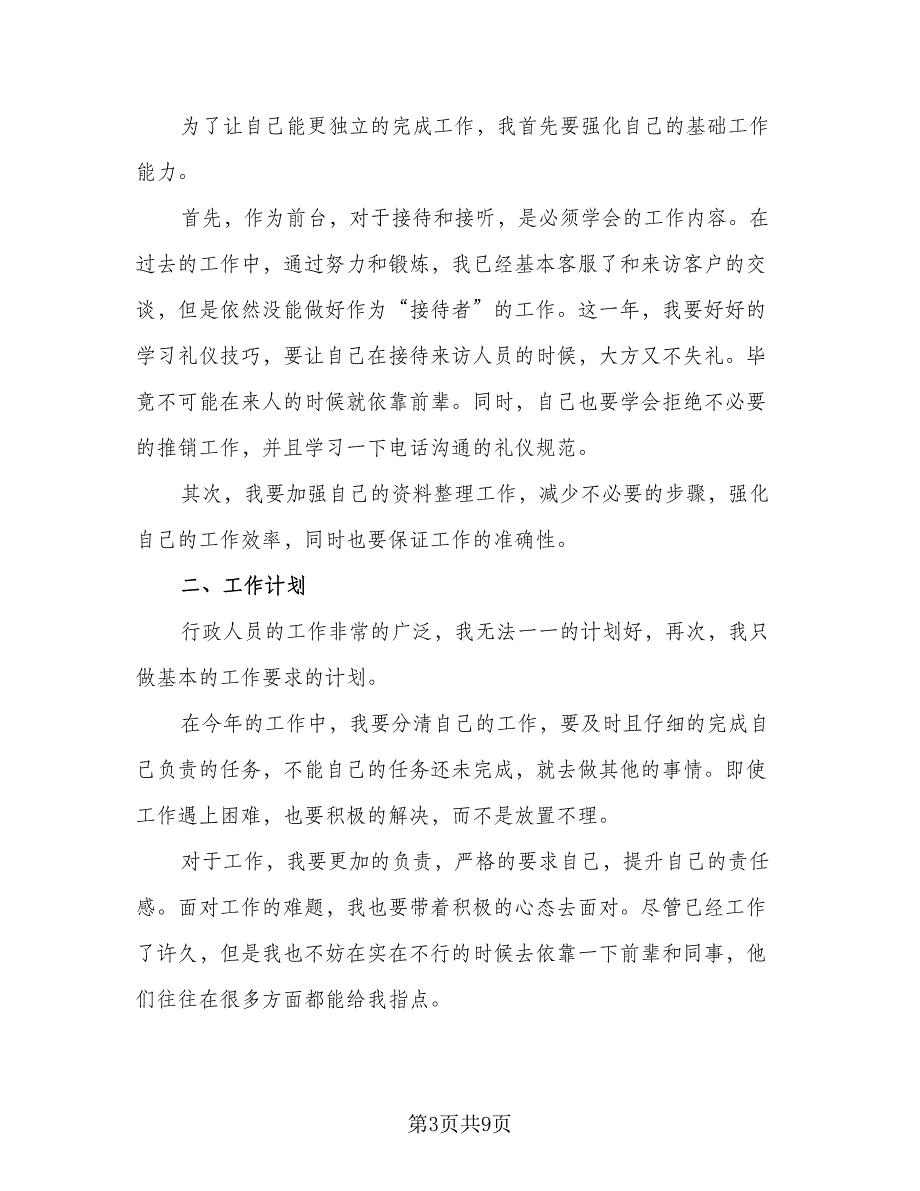 为了让自己能更独立的完成工作，我首先要强化自己的基础工作
能力。
首先，作为前台，对于接待和接听，是必须学会的工作内容。在
过去的工作中，通过努力和锻炼，我已经基本客服了和来访客户的交
谈，但是依然没能做好作为“接待者”的工作。这一年，我要好好的
学习礼仪技巧，要让自己在接待来访人员的时候，大方又不失礼。毕
竟不可能在来人的时候就依靠前辈。同时，自己也要学会拒绝不必要
的推销工作，并且学习一下电话沟通的礼仪规范。
其次，我要加强自己的资料整理工作，减少不必要的步骤，强化
自己的工作效率，同时也要保证工作的准确性。
二、工作计划
行政人员的工作非常的广泛，我无法一一的计划好，再次，我只
做基本的工作要求的计划。
在今年的工作中，我要分清自己的工作，要及时且仔细的完成自
己负责的任务，不能自己的任务还未完成，就去做其他的事情。即使
工作遇上困难，也要积极的解决，而不是放置不理。
对于工作，我要更加的负责，严格的要求自己，提升自己的责任
感。面对工作的难题，我也要带着积极的心态去面对。尽管已经工作
了许久，但是我也不妨在实在不行的时候去依靠一下前辈和同事，他
们往往在很多方面都能给我指点。
第3页共9页